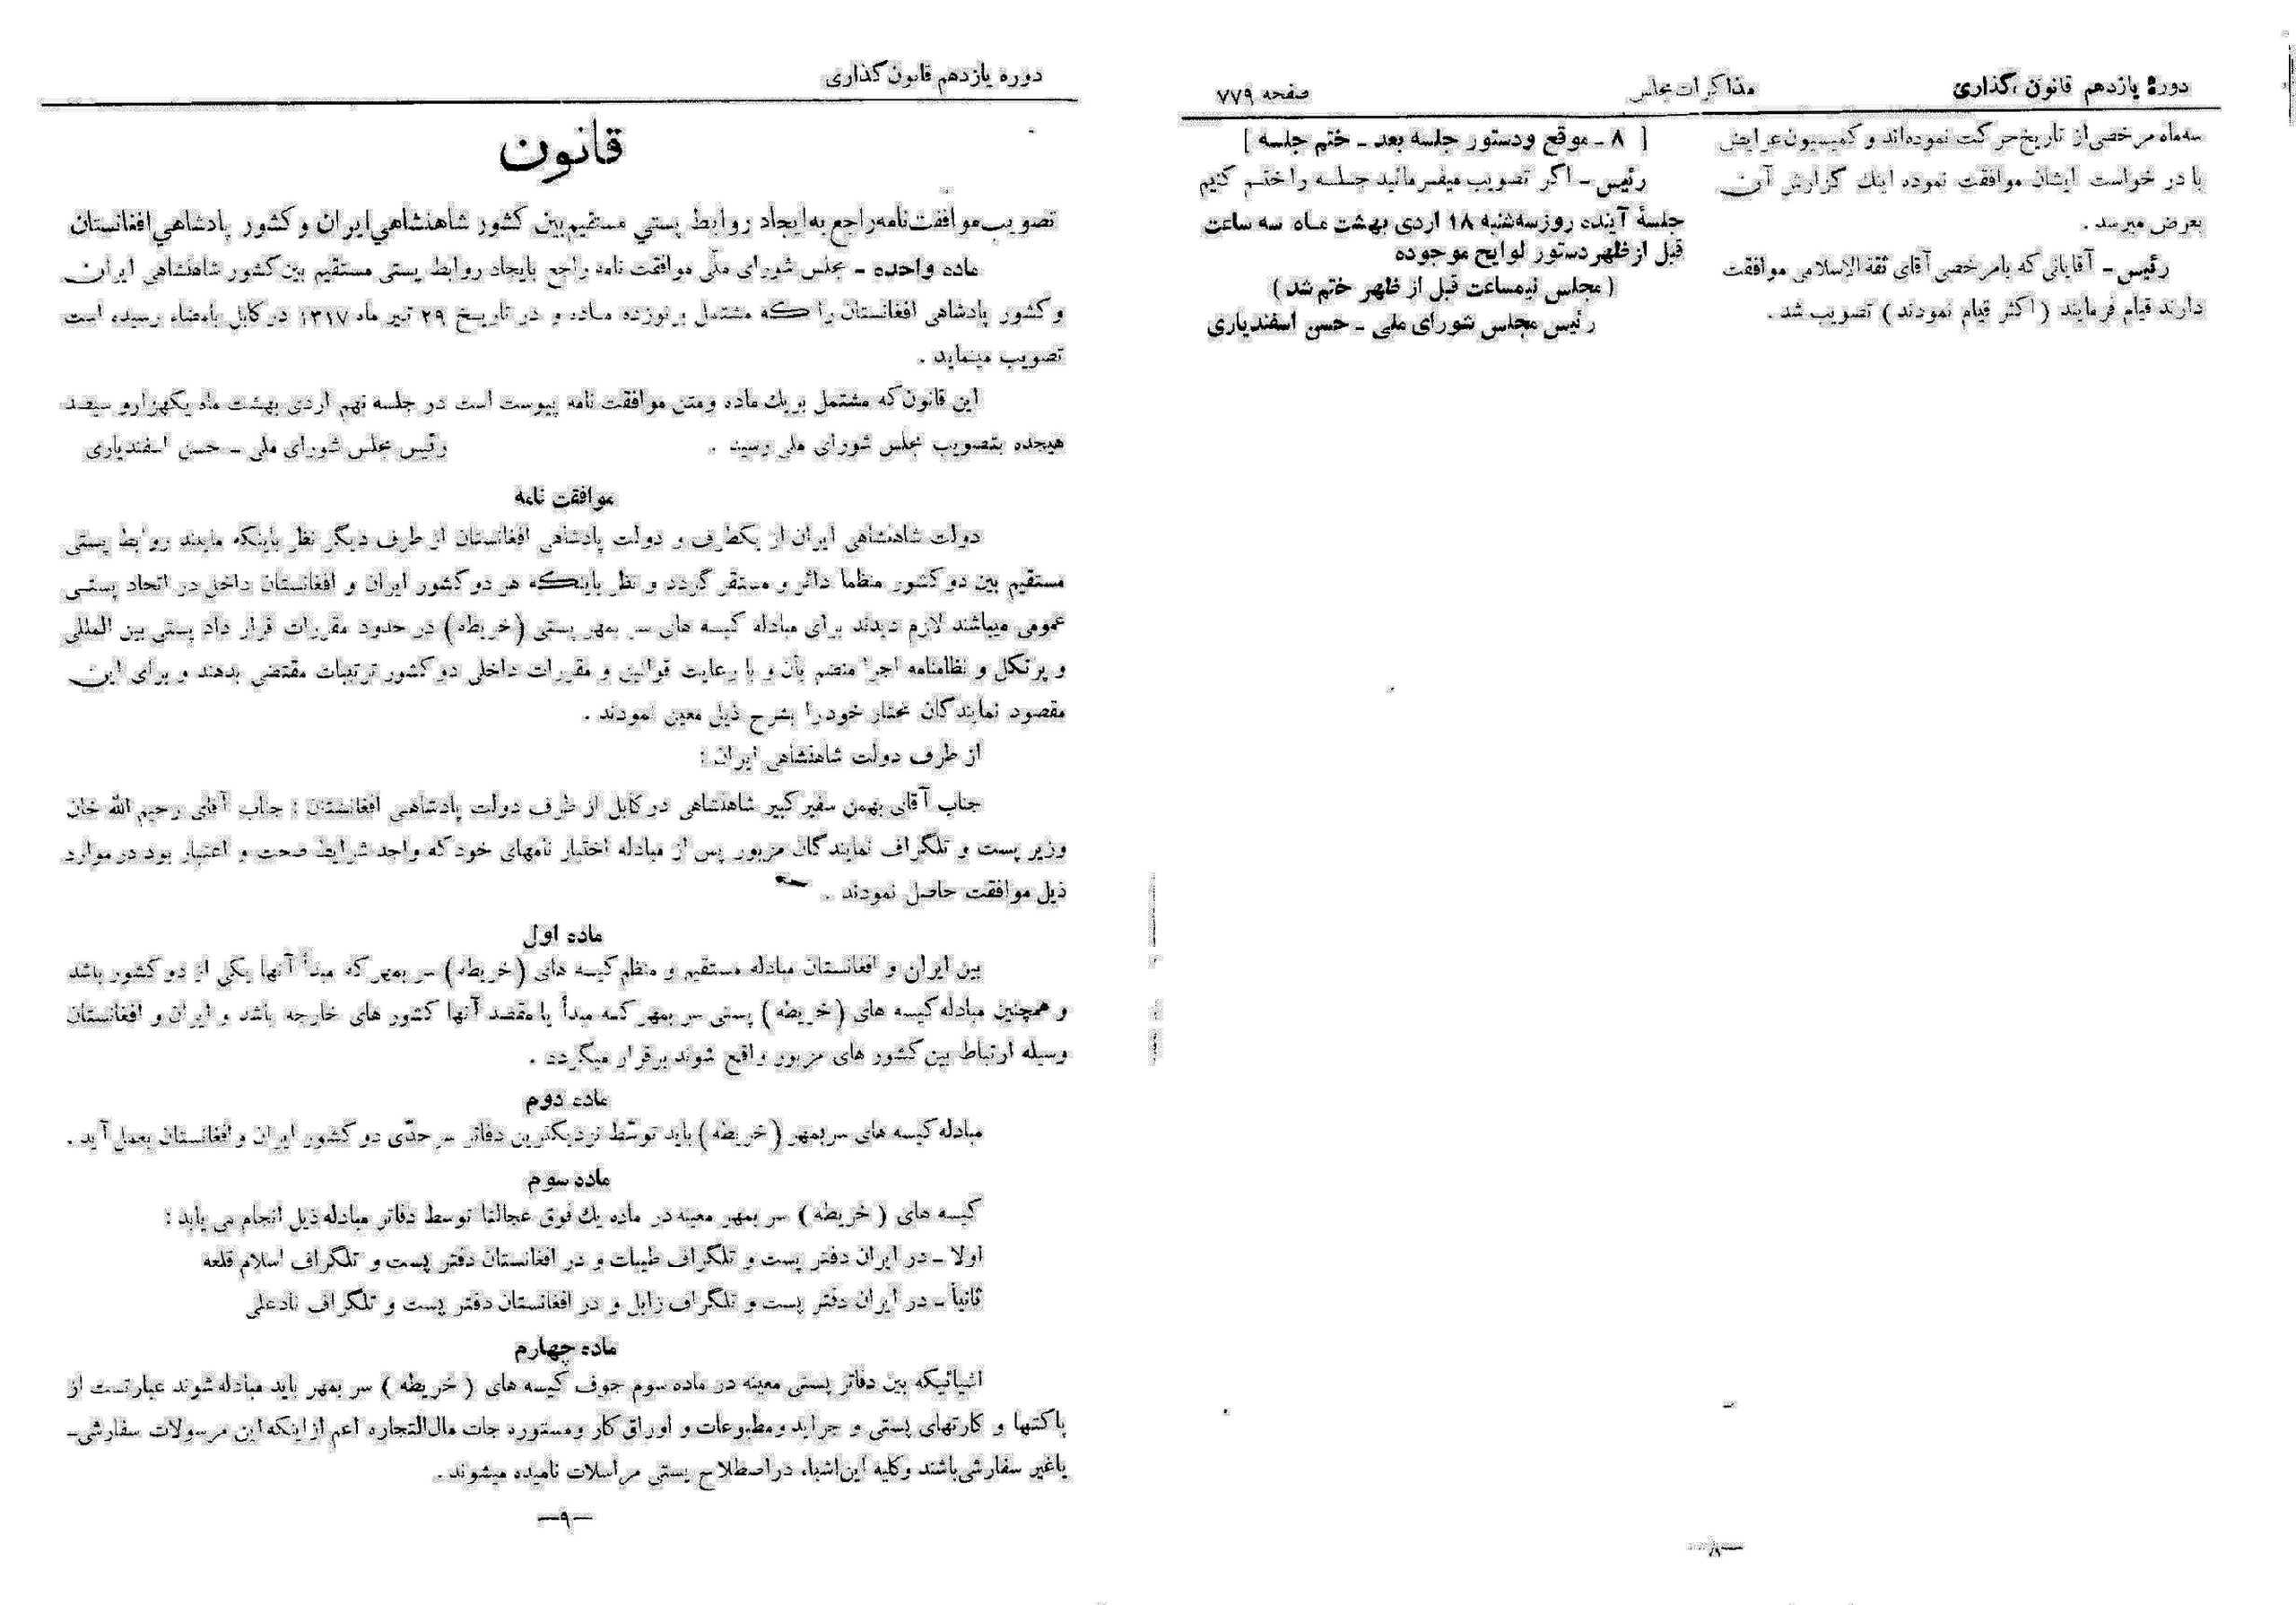 دوره یازدهم قانون گذاری
مذاکرات مجلس
صفحه ۷۷۹
سه‌ماه مرخصی از تاریخ حرکت نموده‌اند و کمیسیون عرایض
با در خواست ایشان موافقت نموده اینك گزارش آن
بعرض میرسد .
رئیس ـ آقایانی که بامرخصی آقای ثقة الاسلامی موافقت
دارند قیام فرمایند ( اکثر قیام نمودند ) تصویب شد .
[ ۸ ـ موقع ودستور جلسه بعد ـ ختم جلسه ]
رئیس ـ اگر تصویب میفرمائید جلسه را ختم کنیم
جلسۀ آینده روز سه‌شنبه ۱۸ اردی بهشت ماه سه ساعت
قبل از ظهر دستور لوایح موجوده
( مجلس نیمساعت قبل از ظهر ختم شد )
رئیس مجلس شورای ملی ـ حسن اسفندیاری
ـ۸ـ
دوره یازدهم قانون گذاری
قانون
تصویب موافقت‌نامه راجع به ایجاد روابط پستی مستقیم بین کشور شاهنشاهی ایران و کشور پادشاهی افغانستان
ماده واحده ـ مجلس شورای ملّی موافقت نامه راجع بایجاد روابط پستی مستقیم بین کشور شاهنشاهی ایران
و کشور پادشاهی افغانستان را که مشتمل بر نوزده ماده و در تاریخ ۲۹ تیر ماه ۱۳۱۷ در کابل بامضاء رسیده است
تصویب مینماید .
این قانون که مشتمل بریك ماده ومتن موافقت نامه پیوست است در جلسه نهم اردی بهشت ماه یکهزارو سیصد
هیجده بتصویب مجلس شورای ملی رسید . رئیس مجلس شورای ملی ـ حسن اسفندیاری
موافقت نامه
دولت شاهنشاهی ایران از یکطرف و دولت پادشاهی افغانستان از طرف دیگر نظر باینکه مایلند روابط پستی
مستقیم بین دو کشور منظما دائر و مستقر گردد و نظر باینکه هر دو کشور ایران و افغانستان داخل در اتحاد پستی
عمومی میباشند لازم دیدند برای مبادله کیسه های سر بمهر پستی (خریطه) در حدود مقررات قرار داد پستی بین المللی
و پرتکل و نظامنامه اجرا منضم بآن و با رعایت قوانین و مقررات داخلی دو کشور ترتیبات مقتضی بدهند و برای این
مقصود نمایندگان مختار خود را بشرح ذیل معین نمودند .
از طرف دولت شاهنشاهی ایران :
جناب آقای بهمن سفیر کبیر شاهنشاهی در کابل از طرف دولت پادشاهی افغانستان : جناب آقای رحیم الله خان
وزیر پست و تلگراف نمایندگان مزبور پس از مبادله اختیار نامهای خود که واجد شرایط صحت و اعتبار بود در موارد
ذیل موافقت حاصل نمودند .
ماده اول
بین ایران و افغانستان مبادله مستقیم و منظم کیسه های (خریطه) سر بمهر که مبدأ آنها یکی از دو کشور باشد
و همچنین مبادله کیسه های (خریطه) پستی سر بمهر که مبدأ یا مقصد آنها کشور های خارجه باشد و ایران و افغانستان
وسیله ارتباط بین کشور های مزبور واقع شوند برقرار میگردد .
ماده دوم
مبادله کیسه های سربمهر (خریطه) باید توسّط نزدیکترین دفاتر سر حدّی دو کشور ایران و افغانستان بعمل آید .
ماده سوم
کیسه های ( خریطه ) سر بمهر معینه در ماده یك فوق عجالتا توسط دفاتر مبادله ذیل انجام می یابد :
اولا ـ در ایران دفتر پست و تلگراف طیبات و در افغانستان دفتر پست و تلگراف اسلام قلعه
ثانیاً ـ در ایران دفتر پست و تلگراف زابل و در افغانستان دفتر پست و تلگراف نادعلی
ماده چهارم
اشیائیکه بین دفاتر پستی معینه در ماده سوم جوف کیسه های ( خریطه ) سر بمهر باید مبادله شوند عبارتست از
پاکتها و کارتهای پستی و جراید ومطبوعات و اوراق کار ومستوره جات مال‌التجاره اعم از اینکه این مرسولات سفارشی ـ
یاغیر سفارشی باشند وکلیه این اشیاء در اصطلاح پستی مراسلات نامیده میشوند .
ـ۹ـ